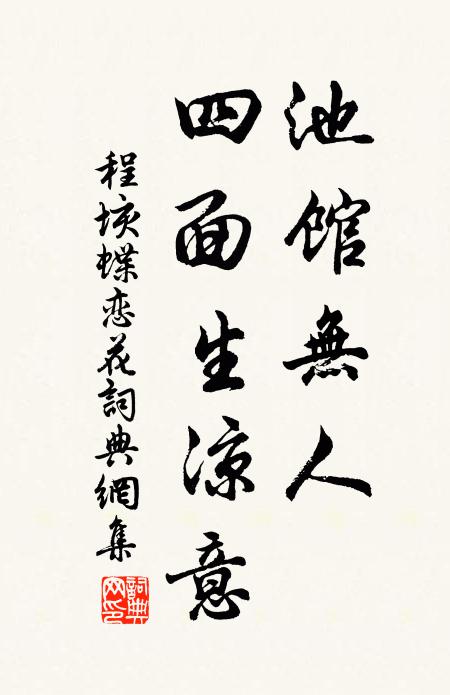 池馆無人
四面生涼意
程垓蝶恋花詞典網集
詞典
网印